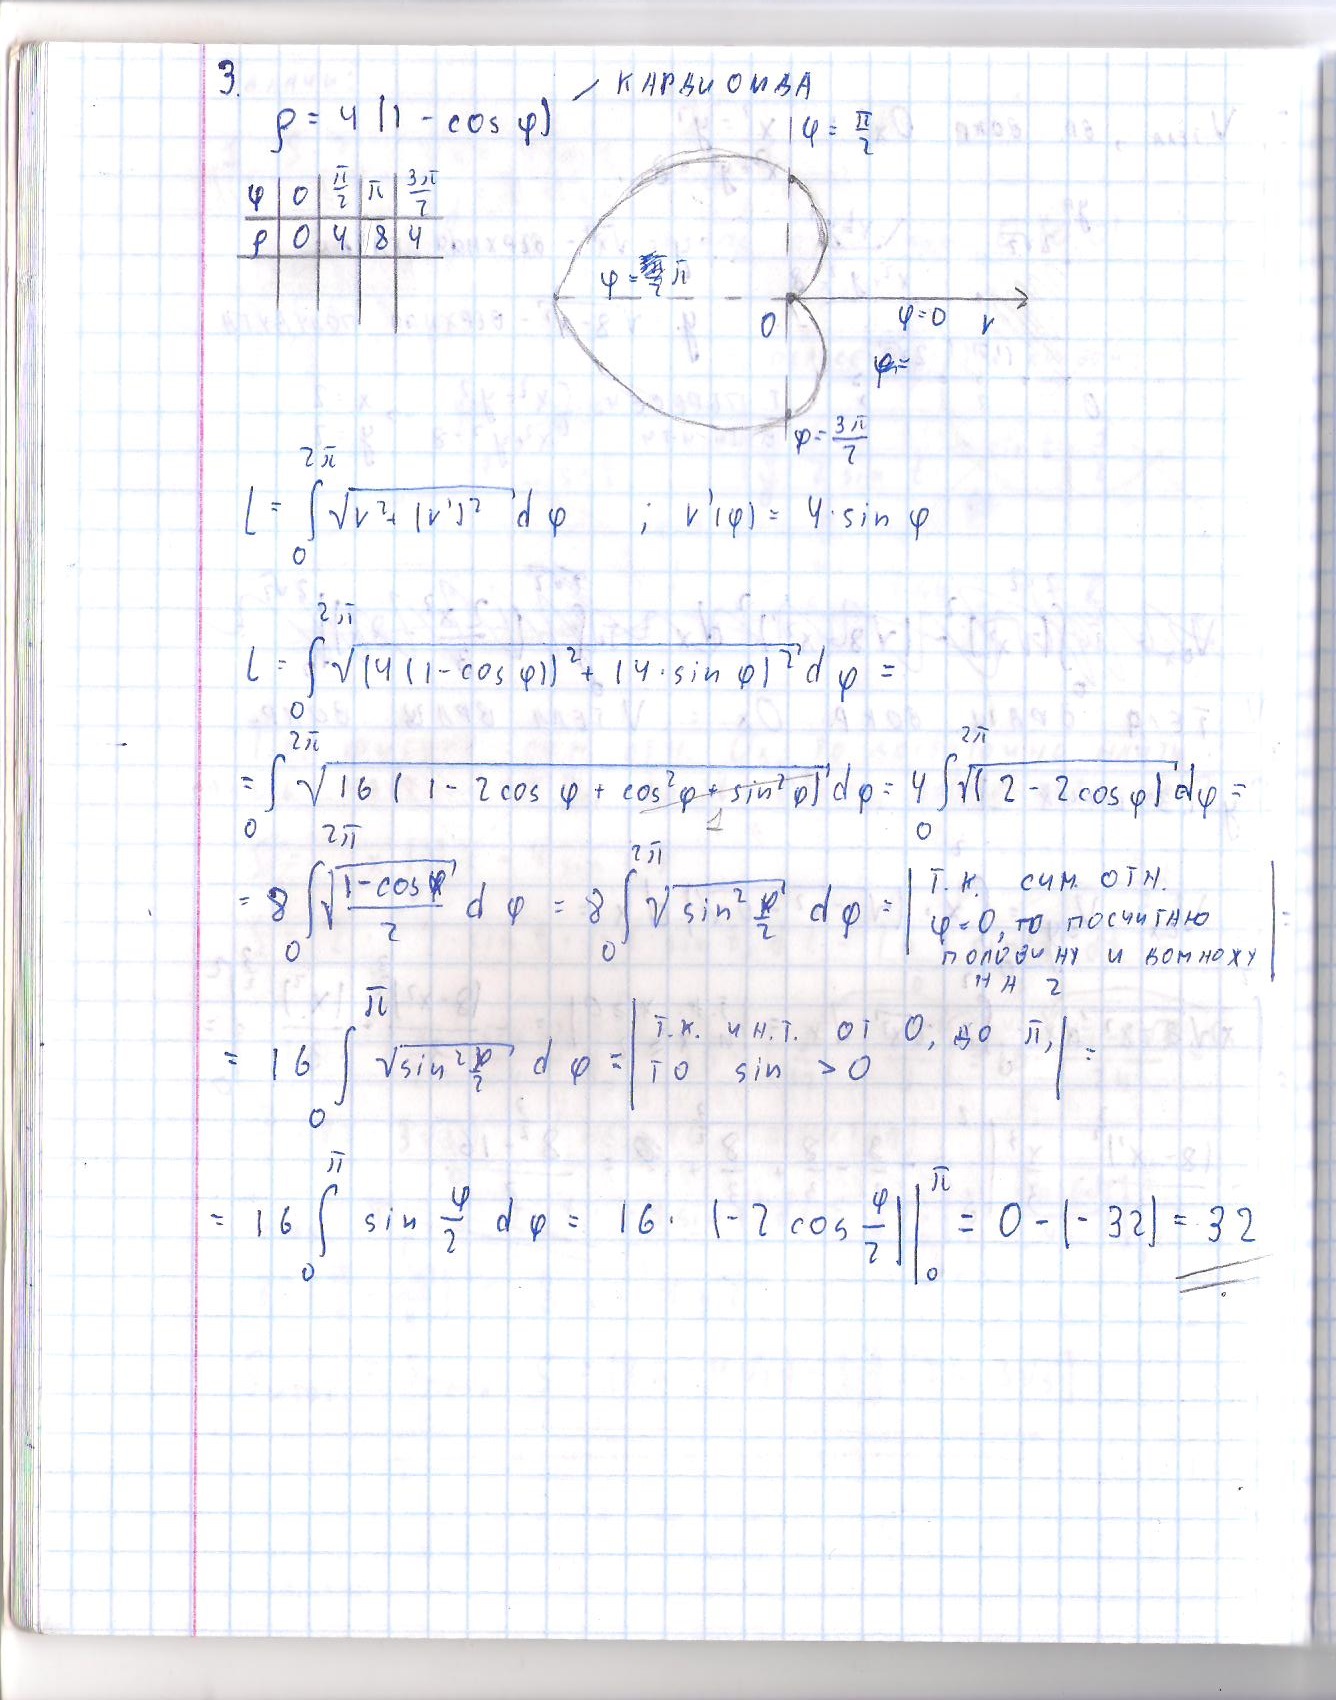 3.
КАРДИОИДА
ρ = 4 (1 - cos φ)
φ = π/2
φ | 0 | π/2 | π | 3π/2
ρ | 0 | 4 | 8 | 4
φ = π
0
φ=0 r
φ=
φ = 3π/2
L = ∫₀^{2π} √(r² + (r')²) dφ ; r'(φ) = 4·sin φ
L = ∫₀^{2π} √((4(1-cos φ))² + (4·sin φ)²) dφ =
= ∫₀^{2π} √(16(1 - 2cos φ + cos²φ + sin²φ)) dφ = 4 ∫₀^{2π} √(2 - 2cos φ) dφ =
1
= 8 ∫₀^{2π} √((1-cos φ)/2) dφ = 8 ∫₀^{2π} √(sin² φ/2) dφ = | Т.К. СИМ. ОТН. φ=0, то ПОСЧИТАЮ ПОЛОВИНУ И ДОМНОЖУ НА 2 | =
= 16 ∫₀^{π} √(sin² φ/2) dφ = | Т.К. ИНТ. ОТ 0, ДО π, ТО sin > 0 | =
= 16 ∫₀^{π} sin φ/2 dφ = 16 · (-2 cos φ/2) |₀^{π} = 0 - (-32) = 32